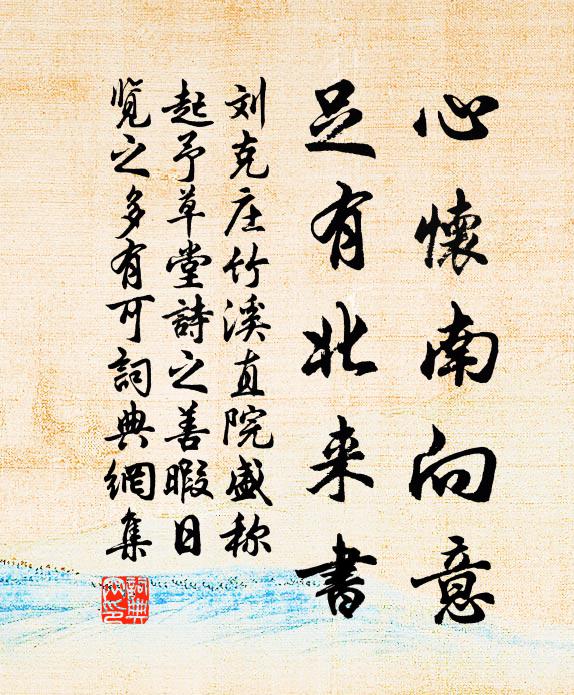 心懷南向意
足有北来書
刘克庄竹溪直院盛称
起予草堂詩之善暇日
覽之多有可詞典網集
詞典